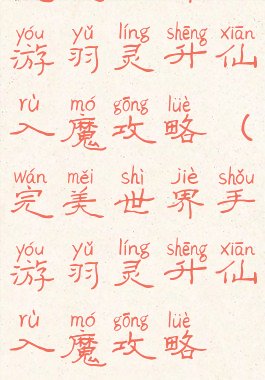 yóu yǔ líng shēng xiān
游羽灵升仙
rù mó gōng lüè
入魔攻略（
wán měi shì jiè shǒu
完美世界手
yóu yǔ líng shēng xiān
游羽灵升仙
rù mó gōng lüè
入魔攻略